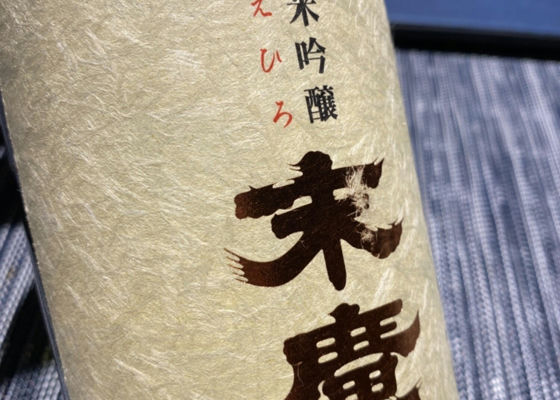 米吟醸
えひろ
末廣